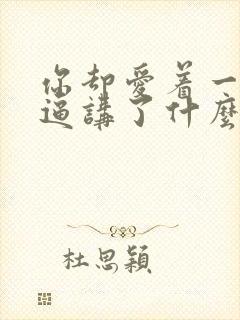 你却愛着一
逼講了什麼
杜思穎